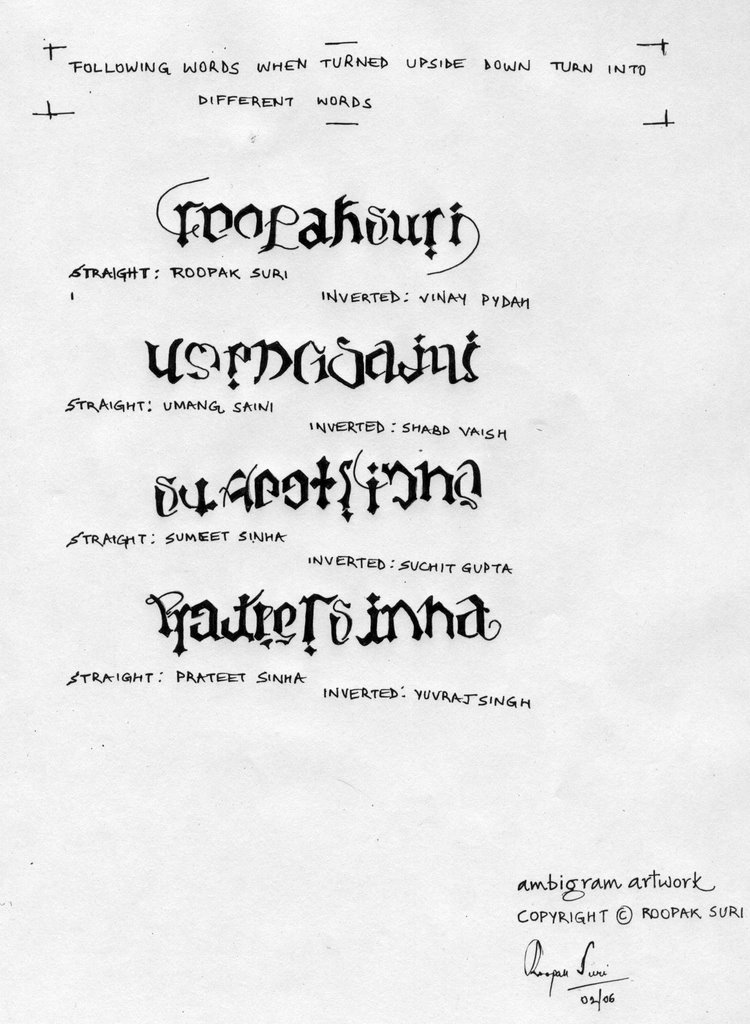 FOLLOWING WORDS WHEN TURNED UPSIDE DOWN TURN INTO
DIFFERENT WORDS
roopaksuri
STRAIGHT: ROOPAK SURI
INVERTED: VINAY PYDAH
umangsaini
STRAIGHT: UMANG SAINI
INVERTED: SHABD VAISH
sumeetsinha
STRAIGHT: SUMEET SINHA
INVERTED: SUCHIT GUPTA
Prateetsinha
STRAIGHT: PRATEET SINHA
INVERTED: YUVRAJ SINGH
ambigram artwork
COPYRIGHT © ROOPAK SURI
Roopak Suri
02/06